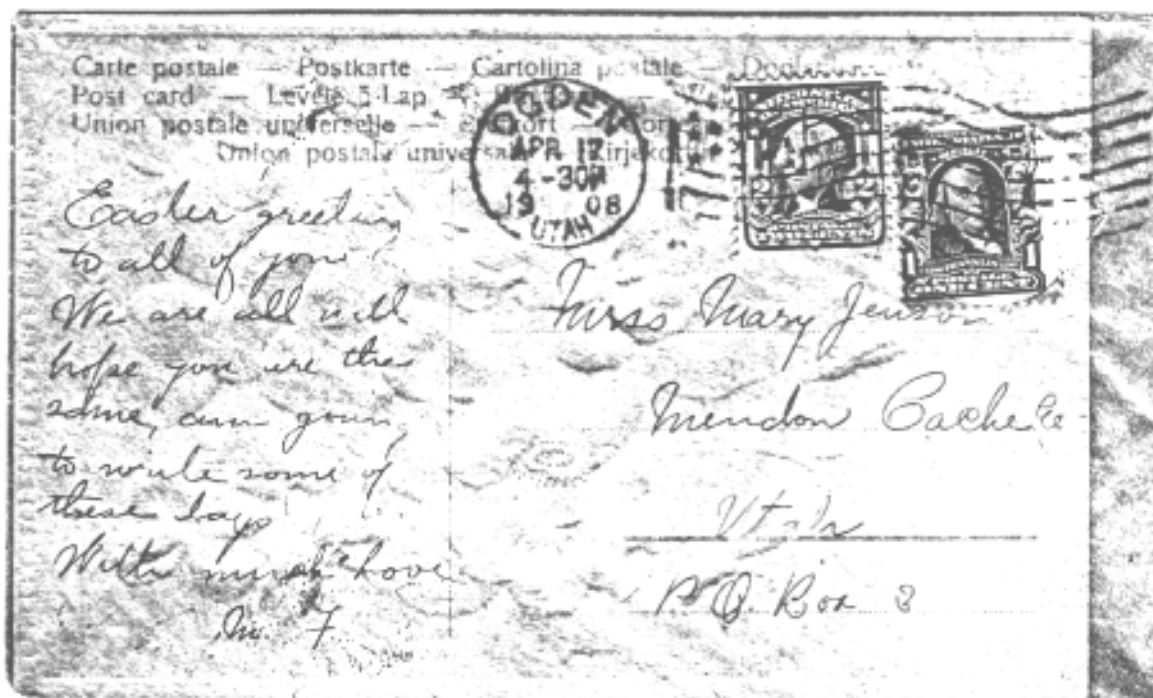 Carte postale — Postkarte — Cartolina postale —
Post card — Levelező-Lap —
Union postale universelle —
Union postale
OGDEN
APR 17
4-30P
1908
UTAH
2 2
Easter greeting
to all of you
We are all well
hope you are the
same, am goin
to write some of
these days
With much love
M. F.
Miss Mary Jenson
Mendon Cache Co
Utah
P.O. Box 3